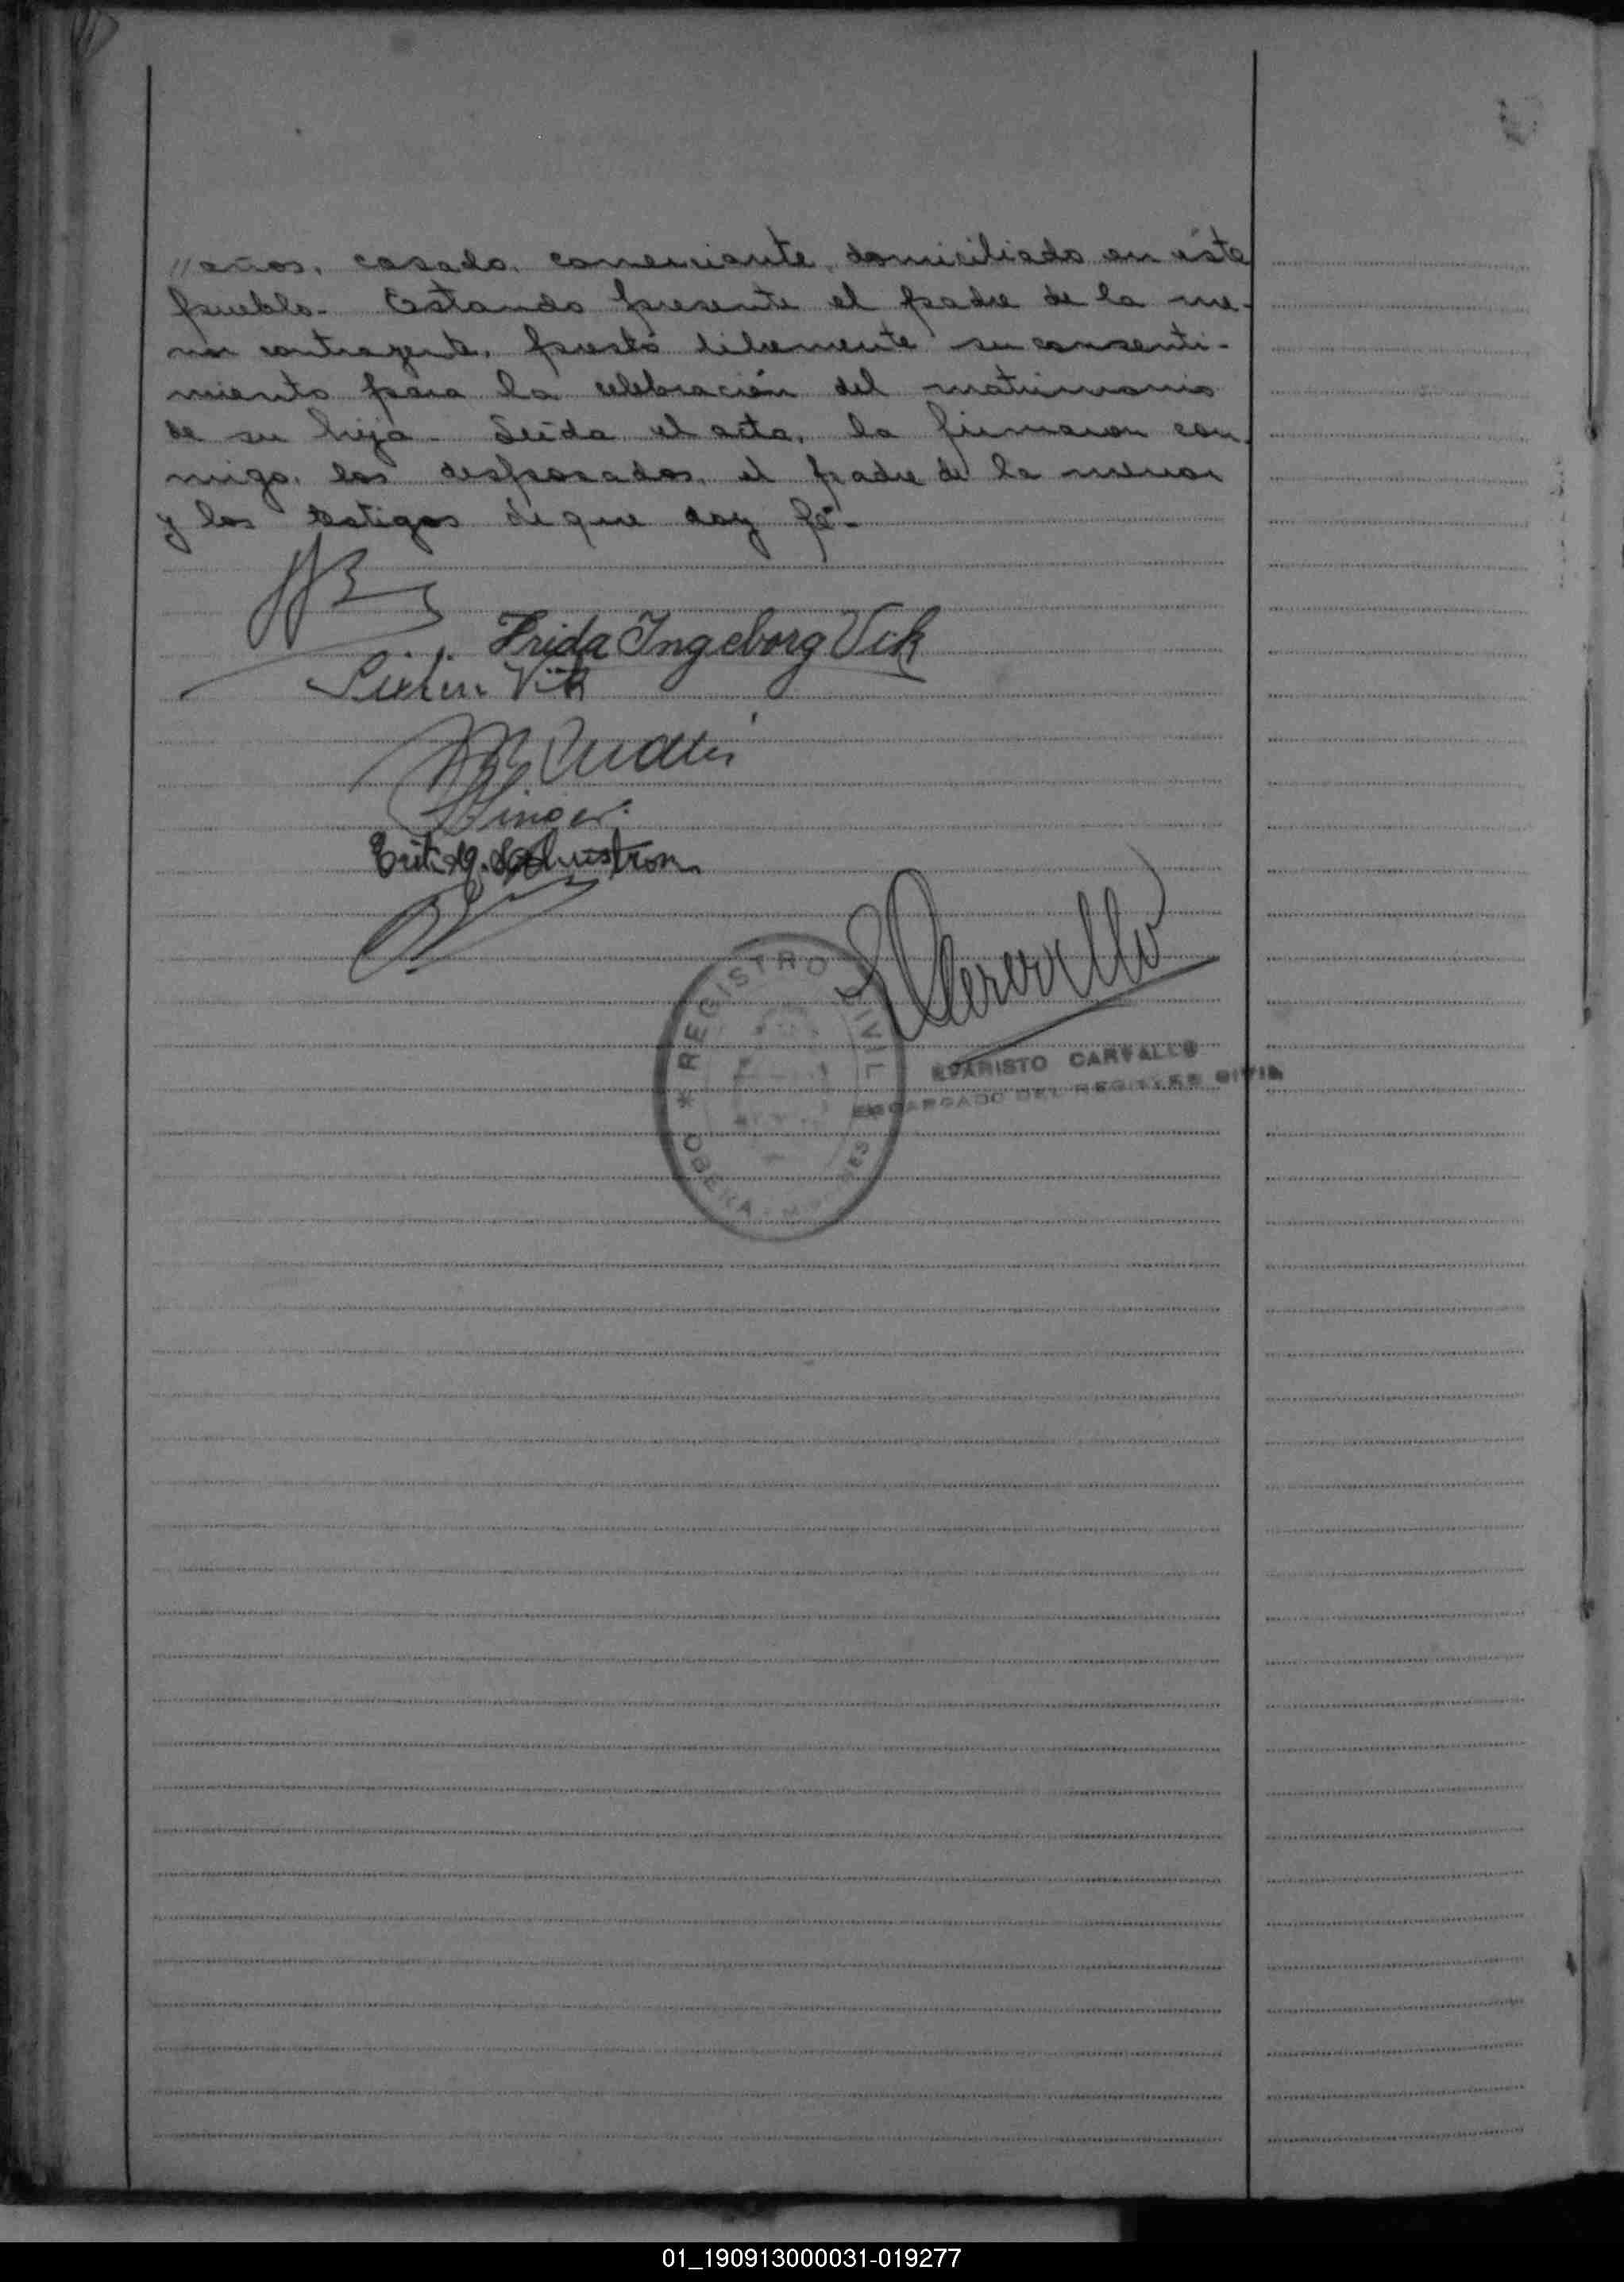 // años, casado, comerciante, domiciliado en éste
pueblo. Estando presente el padre de la me-
nor contrayente, prestó libremente su consenti-
miento para la celebración del matrimonio
de su hija. Leída el acta, la firmaron con-
migo, los desposados, el padre de la menor
y los testigos de que doy fé.-
Frida Ingeborg Vik
Vik
REGISTRO CIVIL
EVARISTO CARVALLO
ENCARGADO DEL REGISTRO CIVIL
OBERA - MISIONES
01_190913000031-019277